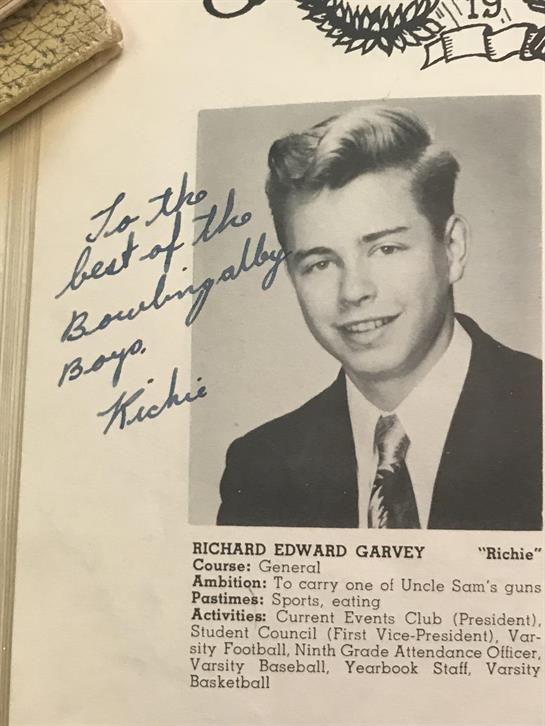 19
To the
best of the
Bowlingalley
Boys.
Richie
RICHARD EDWARD GARVEY "Richie"
Course: General
Ambition: To carry one of Uncle Sam's guns
Pastimes: Sports, eating
Activities: Current Events Club (President),
Student Council (First Vice-President), Var-
sity Football, Ninth Grade Attendance Officer,
Varsity Baseball, Yearbook Staff, Varsity
Basketball